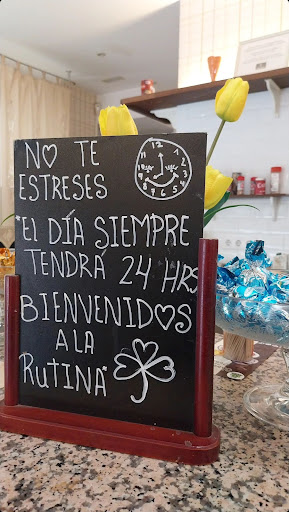 NO TE
ESTRESES
"El DÍA SIEMPRE
TENDRÁ 24 HRS
BIENVENIDOS
A LA
RUTINA"